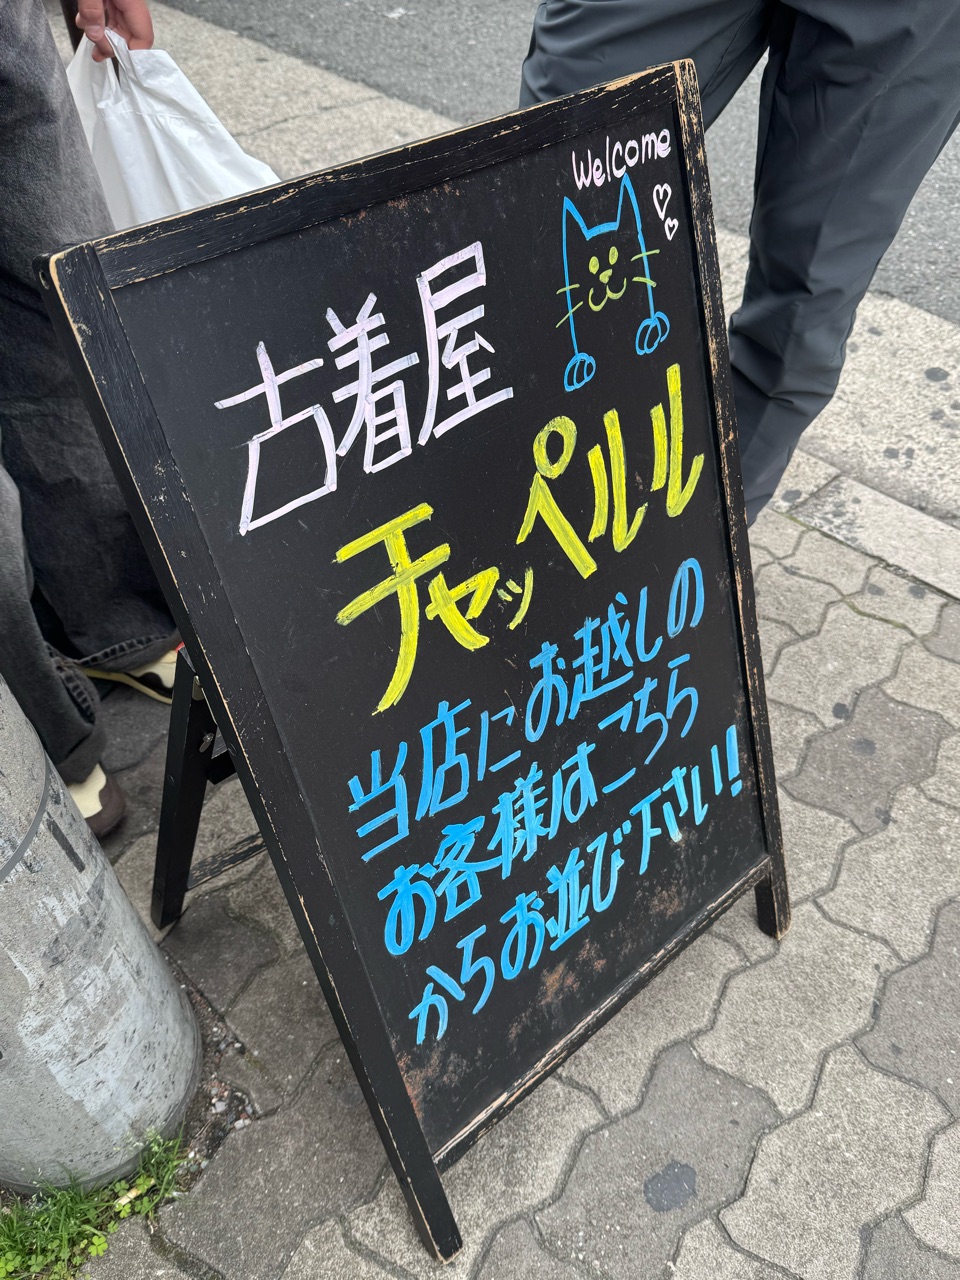 Welcome
古着屋
チャッペルル
当店にお越しの
お客様はこちら
からお並び下さい!